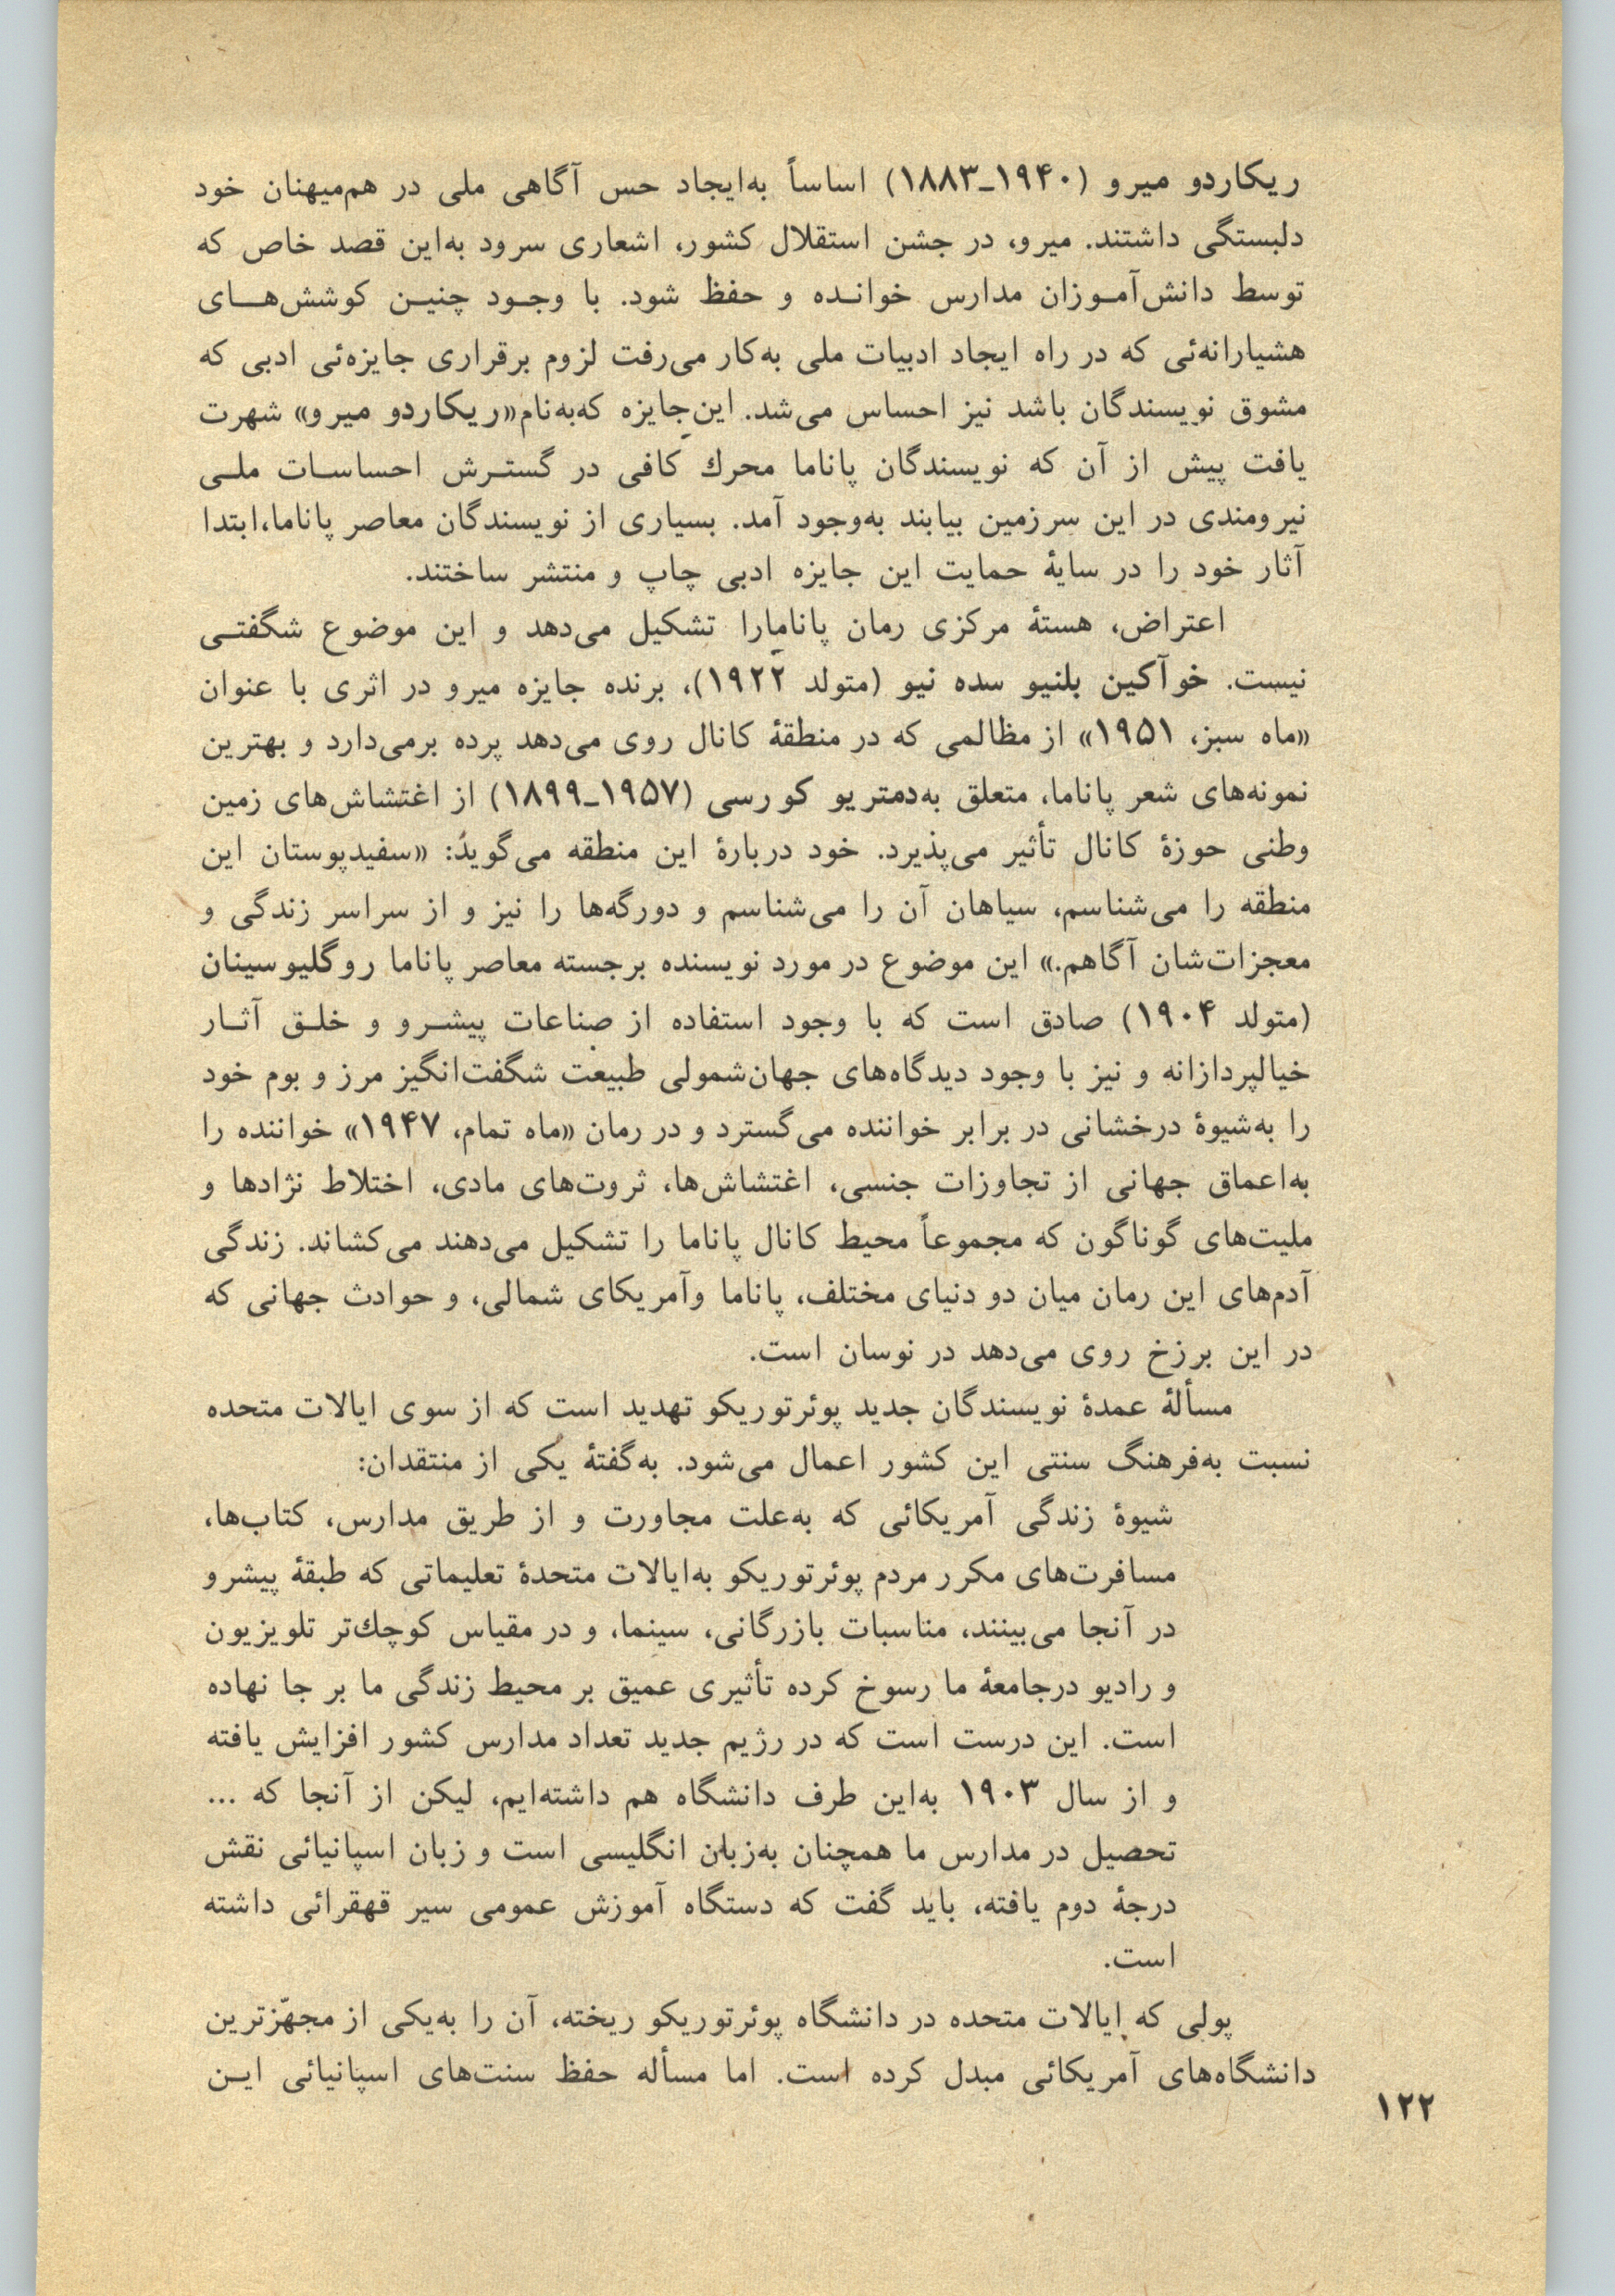 ریکاردو میرو (۱۹۴۰ـ۱۸۸۳) اساساً به‌ایجاد حس آگاهی ملی در هم‌میهنان خود
دلبستگی داشتند. میرو، در جشن استقلال کشور، اشعاری سرود به‌این قصد خاص که
توسط دانش‌آمـوزان مدارس خوانـده و حفظ شود. با وجـود چنیـن کوشش‌هـای
هشیارانه‌ئی که در راه ایجاد ادبیات ملی به‌کار می‌رفت لزوم برقراری جایزه‌ئی ادبی که
مشوق نویسندگان باشد نیز احساس می‌شد. این جایزه که‌به‌نام «ریکاردو میرو» شهرت
یافت پیش از آن که نویسندگان پاناما محرك کافی در گستـرش احساسـات ملـی
نیرومندی در این سرزمین بیابند به‌وجود آمد. بسیاری از نویسندگان معاصر پاناما، ابتدا
آثار خود را در سایۀ حمایت این جایزه ادبی چاپ و منتشر ساختند.
اعتراض، هستۀ مرکزی رمان پانامارا تشکیل می‌دهد و این موضوع شگفتـی
نیست. خوآکین بلنیو سده نیو (متولد ۱۹۲۲)، برنده جایزه میرو در اثری با عنوان
«ماه سبز، ۱۹۵۱» از مظالمی که در منطقۀ کانال روی می‌دهد پرده برمی‌دارد و بهترین
نمونه‌های شعر پاناما، متعلق به‌دمتریو کورسی (۱۹۵۷ـ۱۸۹۹) از اغتشاش‌های زمین
وطنی حوزۀ کانال تأثیر می‌پذیرد. خود دربارۀ این منطقه می‌گوید: «سفیدپوستان این
منطقه را می‌شناسم، سیاهان آن را می‌شناسم و دورگه‌ها را نیز و از سراسر زندگی و
معجزات‌شان آگاهم.» این موضوع در مورد نویسنده برجسته معاصر پاناما روگلیوسینان
(متولد ۱۹۰۴) صادق است که با وجود استفاده از صناعات پیشـرو و خلـق آثـار
خیالپردازانه و نیز با وجود دیدگاه‌های جهان‌شمولی طبیعت شگفت‌انگیز مرز و بوم خود
را به‌شیوۀ درخشانی در برابر خواننده می‌گسترد و در رمان «ماه تمام، ۱۹۴۷» خواننده را
به‌اعماق جهانی از تجاوزات جنسی، اغتشاش‌ها، ثروت‌های مادی، اختلاط نژادها و
ملیت‌های گوناگون که مجموعاً محیط کانال پاناما را تشکیل می‌دهند می‌کشاند. زندگی
آدم‌های این رمان میان دو دنیای مختلف، پاناما وآمریکای شمالی، و حوادث جهانی که
در این برزخ روی می‌دهد در نوسان است.
مسألۀ عمدۀ نویسندگان جدید پوئرتوریکو تهدید است که از سوی ایالات متحده
نسبت به‌فرهنگ سنتی این کشور اعمال می‌شود. به‌گفتۀ یکی از منتقدان:
شیوۀ زندگی آمریکائی که به‌علت مجاورت و از طریق مدارس، کتاب‌ها،
مسافرت‌های مکرر مردم پوئرتوریکو به‌ایالات متحدۀ تعلیماتی که طبقۀ پیشرو
در آنجا می‌بینند، مناسبات بازرگانی، سینما، و در مقیاس کوچك‌تر تلویزیون
و رادیو درجامعۀ ما رسوخ کرده تأثیری عمیق بر محیط زندگی ما بر جا نهاده
است. این درست است که در رژیم جدید تعداد مدارس کشور افزایش یافته
و از سال ۱۹۰۳ به‌این طرف دانشگاه هم داشته‌ایم، لیکن از آنجا که ...
تحصیل در مدارس ما همچنان به‌زبان انگلیسی است و زبان اسپانیائی نقش
درجۀ دوم یافته، باید گفت که دستگاه آموزش عمومی سیر قهقرائی داشته
است.
پولی که ایالات متحده در دانشگاه پوئرتوریکو ریخته، آن را به‌یکی از مجهّزترین
دانشگاه‌های آمریکائی مبدل کرده است. اما مسأله حفظ سنت‌های اسپانیائی ایـن
۱۲۲